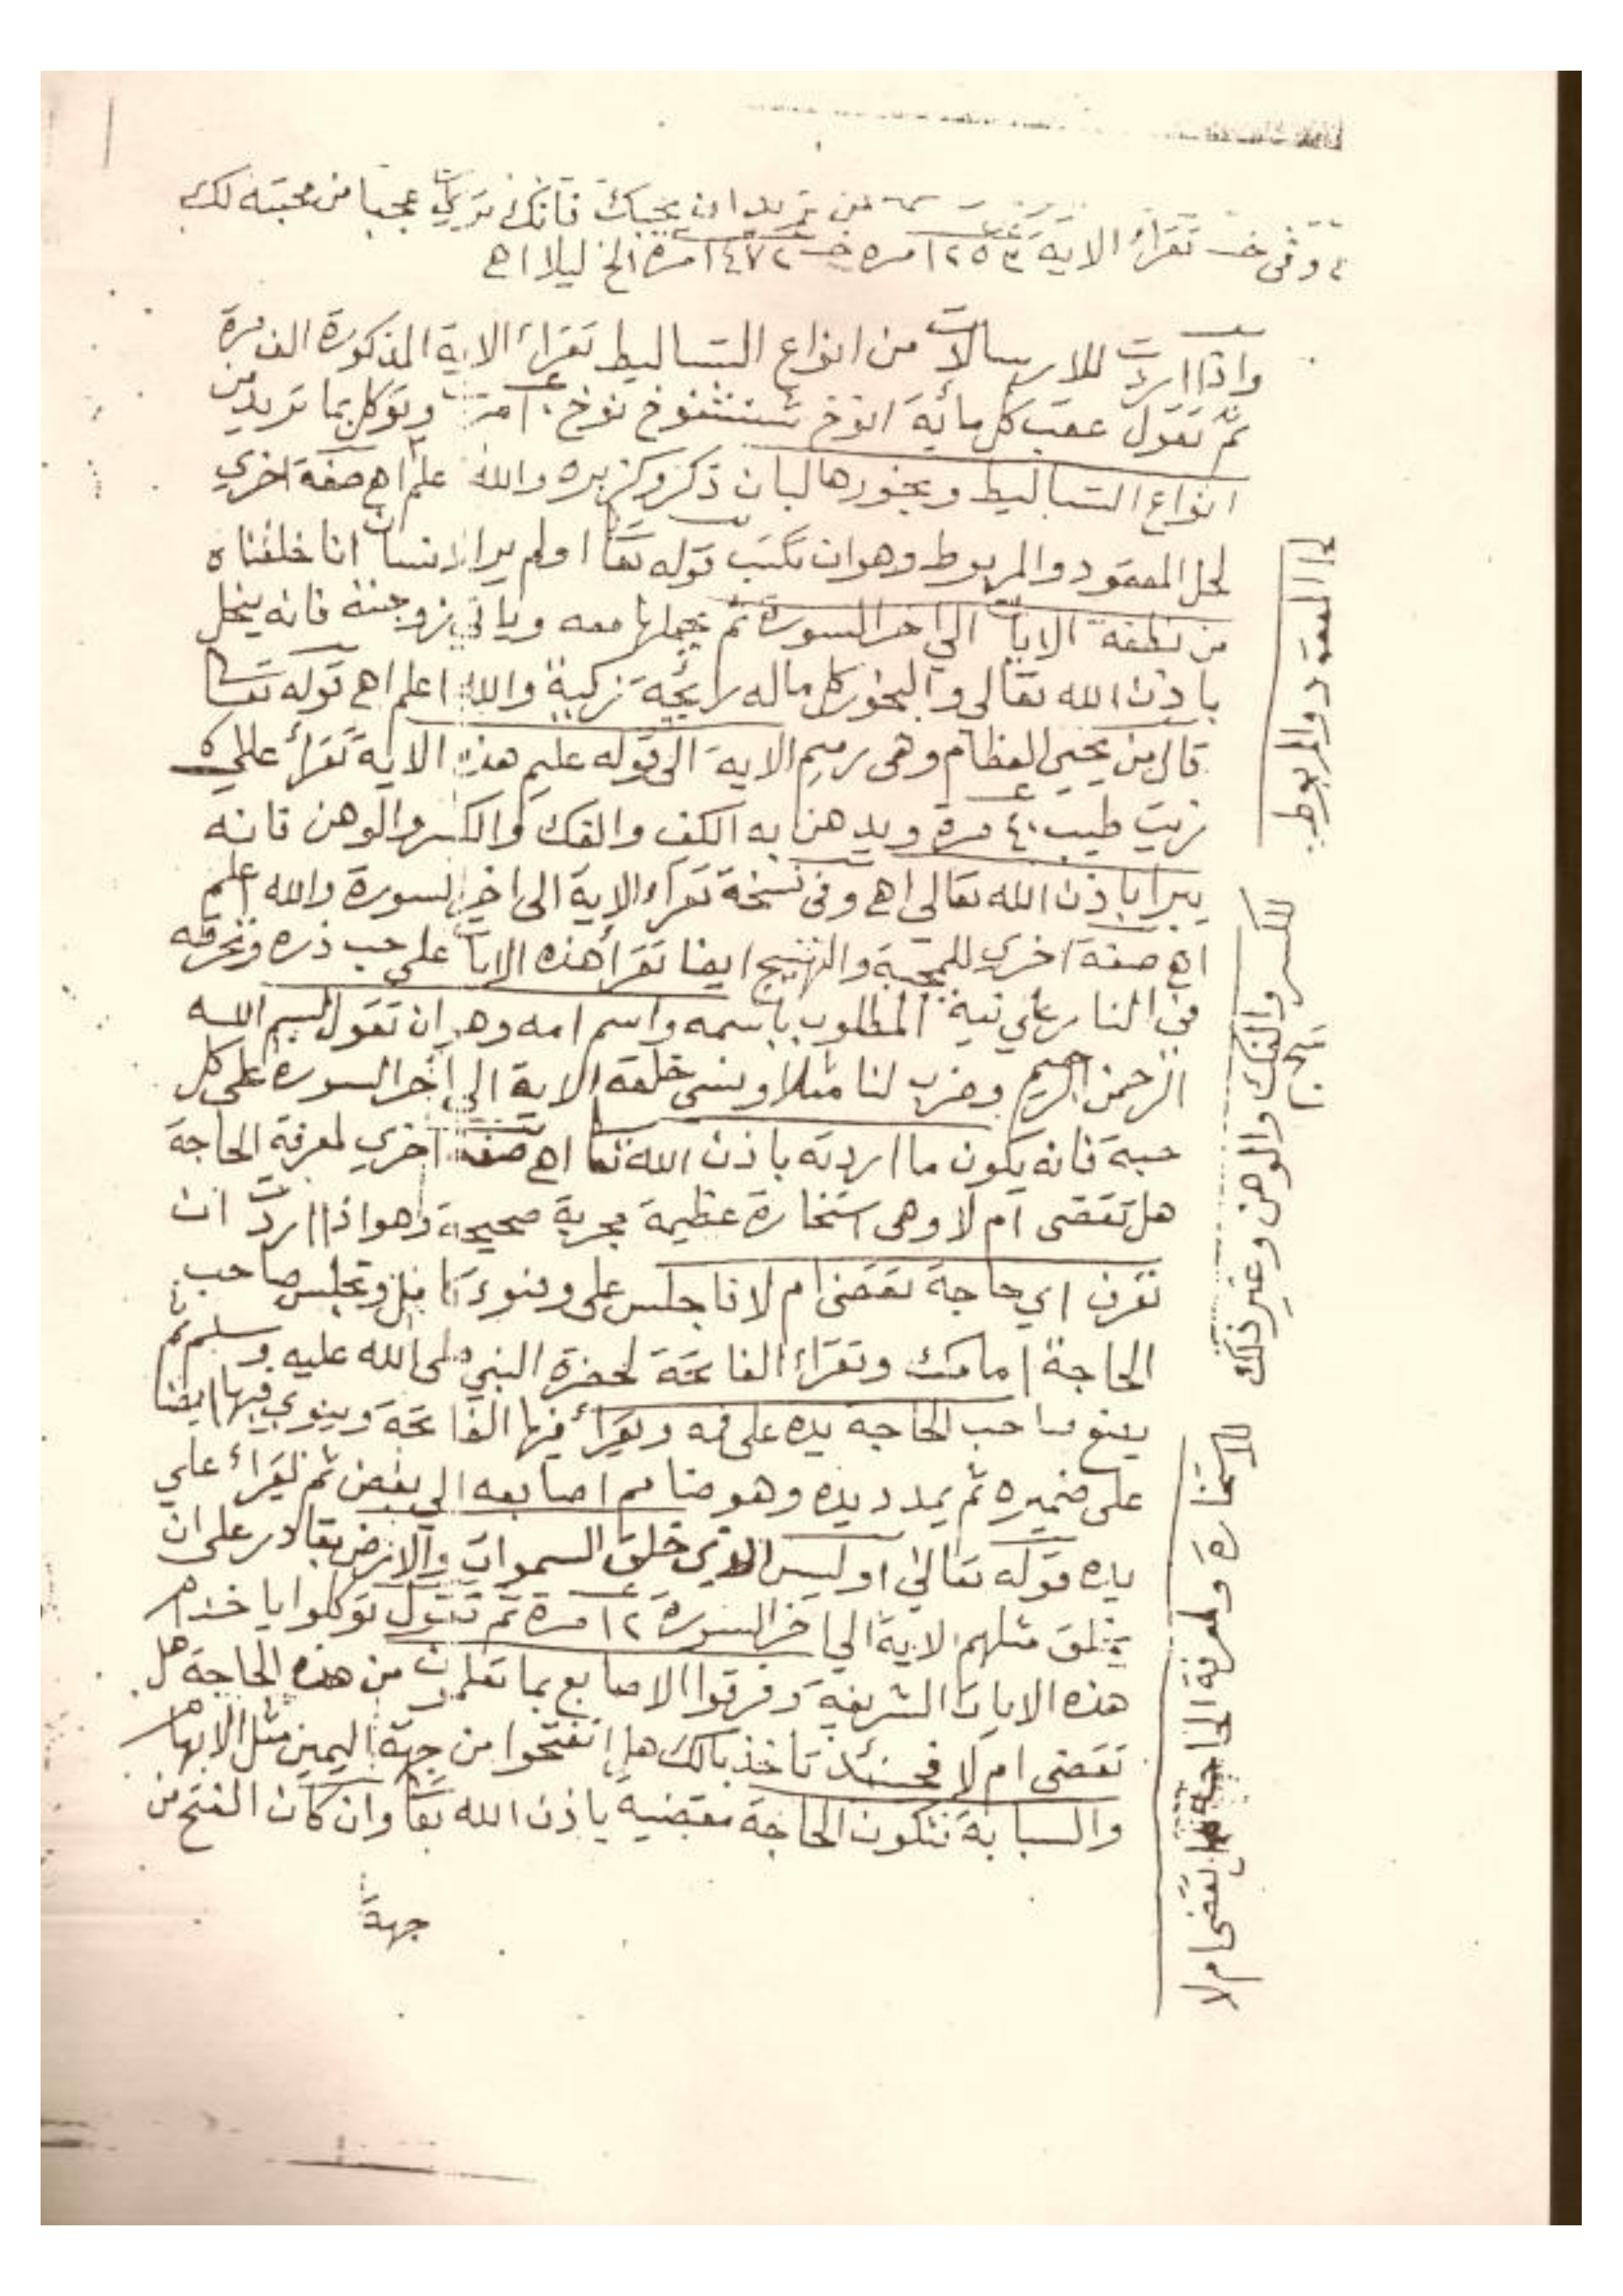 من تريد ان يحبك فانك تري عجبا من محبته لك
وفى خـ تقراء الاية ١٢٥٤ مره خـ ١٤٧٢ مرة الخ ليلا اهـ
واذا اردت للارسالات من انواع التساليط تقراء الاية المذكورة الف مرة
ثم تقول عقب كل مائة انوخ شنشنوخ نوخ ١٠ مرت وتوكل بما تريد من
انواع التساليط وبخورها لبان ذكر وكزبره والله علم اهـ صفة اخري
لحل المعقود والمربوط وهو ان تكتب قوله تعا اولم يرالانسان انا خلقناه
من نطفة الايات الي اخر السورة ثم يحملها معه وياتي زوجته فانه ينحل
باذن الله تعالى والبخور كل ماله رايحة زكية والله اعلم اهـ قوله تعا
قال من يحيى العظام وهى رميم الاية الى قوله عليم هذه الاية تقرأ على
زيت طيب ٤٠ مرة ويدهن به الكف والفك والكسر والوهن فانه
يبرا باذن الله تعالى اهـ وفى نسخة تقراء الاية الى اخر السورة والله اعلم
اهـ صفة اخري للمحبة والتهييج ايضا تقرأ هذه الايات على حب ذره وتحرقه
في النار علي نية المطلوب باسمه واسم امه وهو ان تقول بسم الله
الرحمن الرحيم وضرب لنا مثلا ونسى خلقه الاية الي اخر السوره على كل
حبة فانه يكون ما اردته باذن الله تعا اهـ صفة اخري لمعرفة الحاجة
هل تقضى ام لا وهى استخارة عظيمة مجربة صحيحة وهو اذا اردت ان
تعرف اي حاجة تقضى ام لا فاجلس على وضوء كامل وتجلس صاحب
الحاجة امامك وتقراء الفاتحة لحضرة النبي صلى الله عليه وسلم ثم
يضع صاحب الحاجه يده على فمه ويقرأ فيها الفاتحة وينوي فيها ايضا
على ضميره ثم يمدد يده وهو ضامم اصابعه الي بعض ثم تقراء علي
يده قوله تعالي اوليس الذي خلق السموات والارض بقادر على ان
يخلق مثلهم الاية الي اخر السورة ١٢ مرة ثم تقول توكلوا يا خدام
هذه الايات الشريفة وفرقوا الاصابع بما تعلمون من هذه الحاجة هل
تقضى ام لا فحينئد تاخذ بالك هل انفتحوا من جهة اليمين مثل الابهام
والسبابة فتكون الحاجة مقضية باذن الله تعا وان كان الفتح من
جهة
المعقود والمربوط
للكسر والفك والوهن وغير ذلك
للاستخارة ولمعرفة الحاجة هل تقضى ام لا